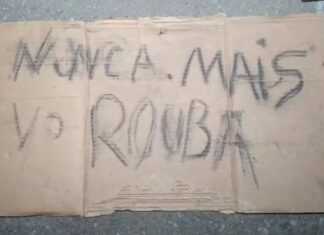 NUNCA. MAIS
VO ROUBA